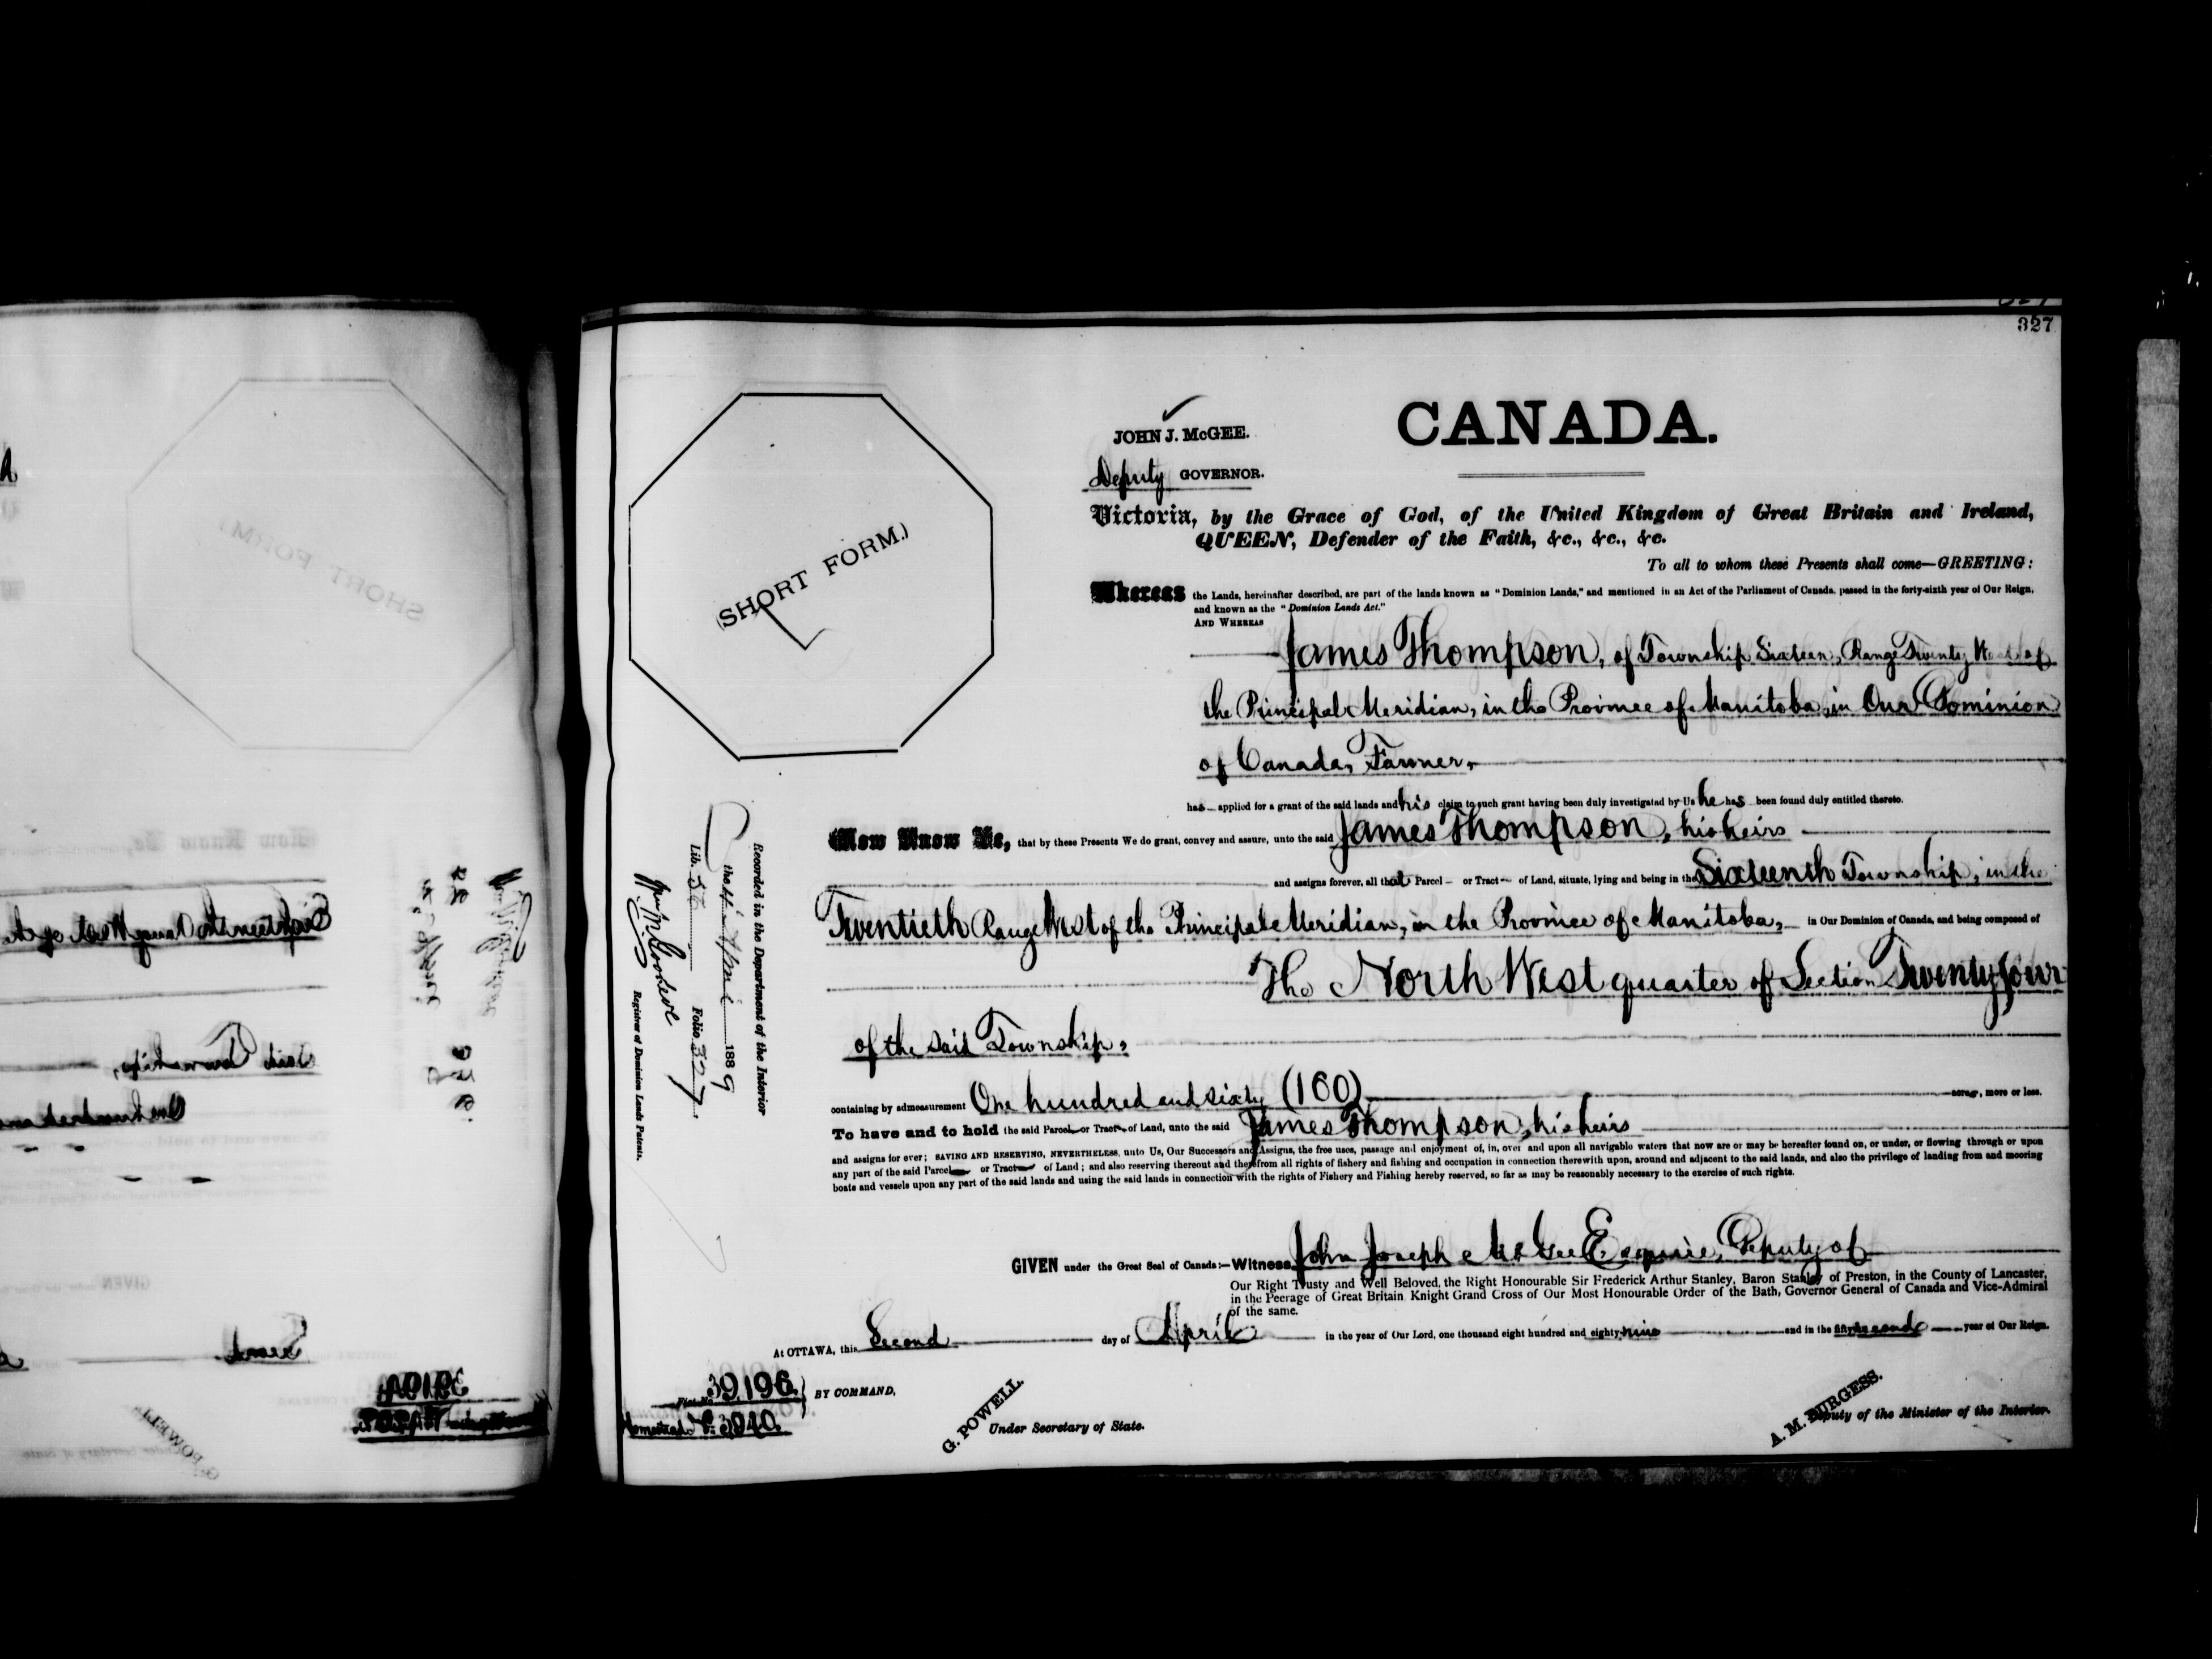 327
CANADA.
JOHN J. McGEE.
Deputy GOVERNOR.
(SHORT FORM.)
Victoria, by the Grace of God, of the United Kingdom of Great Britain and Ireland,
QUEEN, Defender of the Faith, &c., &c., &c.
To all to whom these Presents shall come—GREETING:
Whereas the Lands, hereinafter described, are part of the lands known as "Dominion Lands," and mentioned in an Act of the Parliament of Canada, passed in the forty-sixth year of Our Reign,
and known as the "Dominion Lands Act."
AND WHEREAS
James Thompson, of Township Sixteen, Range Twenty West of
the Principal Meridian, in the Province of Manitoba, in Our Dominion
of Canada, Farmer,
has applied for a grant of the said lands and his claim to such grant having been duly investigated by Us he has been found duly entitled thereto.
Now Know Ye, that by these Presents We do grant, convey and assure, unto the said James Thompson, his heirs
and assigns forever, all that Parcel or Tract of Land, situate, lying and being in the Sixteenth Township, in the
Twentieth Range West of the Principal Meridian, in the Province of Manitoba, in Our Dominion of Canada, and being composed of
The North West quarter of Section Twenty four
of the said Township,
containing by admeasurement One hundred and sixty (160) acres, more or less.
To have and to hold the said Parcel or Tract of Land, unto the said James Thompson, his heirs
and assigns for ever; SAVING AND RESERVING, NEVERTHELESS, unto Us, Our Successors and Assigns, the free uses, passage and enjoyment of, in, over and upon all navigable waters that now are or may be hereafter found on, or under, or flowing through or upon
any part of the said Parcel or Tract of Land; and also reserving thereout and therefrom all rights of fishery and fishing and occupation in connection therewith upon, around and adjacent to the said lands, and also the privilege of landing from and mooring
boats and vessels upon any part of the said lands and using the said lands in connection with the rights of Fishery and Fishing hereby reserved, so far as may be reasonably necessary to the exercise of such rights.
GIVEN under the Great Seal of Canada:—Witness John Joseph McGee Esquire, Deputy of
Our Right Trusty and Well Beloved, the Right Honourable Sir Frederick Arthur Stanley, Baron Stanley of Preston, in the County of Lancaster,
in the Peerage of Great Britain Knight Grand Cross of Our Most Honourable Order of the Bath, Governor General of Canada and Vice-Admiral
of the same.
At OTTAWA, this Second day of April in the year of Our Lord, one thousand eight hundred and eighty-nine and in the fifty second year of Our Reign.
39196.
Homestead No. 3940.
BY COMMAND,
G. POWELL.
Under Secretary of State.
A. M. BURGESS.
Deputy of the Minister of the Interior.
Recorded in the Department of the Interior
the April 1889
Lib. 56 Folio 327
Registrar of Dominion Lands Patents.